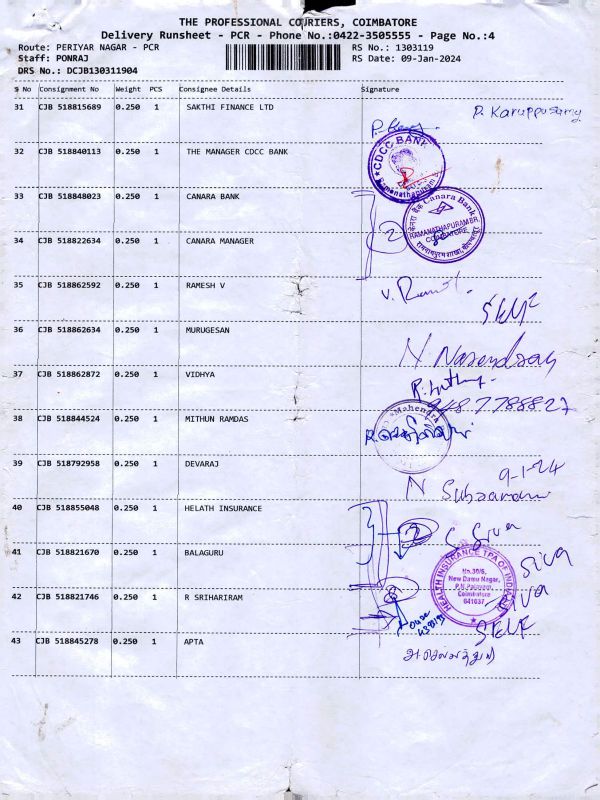 THE PROFESSIONAL COURIERS, COIMBATORE
Delivery Runsheet - PCR - Phone No.:0422-3505555 - Page No.:4
Route: PERIYAR NAGAR - PCR RS No.: 1303119
Staff: PONRAJ RS Date: 09-Jan-2024
DRS No.: DCJB130311904
S No Consignment No Weight PCS Consignee Details Signature
31 CJB 518815689 0.250 1 SAKTHI FINANCE LTD P. Karuppusamy
32 CJB 518840113 0.250 1 THE MANAGER CDCC BANK
CDCC BANK
Ramanathapuram
33 CJB 518848023 0.250 1 CANARA BANK
Canara Bank
RAMANATHAPURAM BR.
COIMBATORE
34 CJB 518822634 0.250 1 CANARA MANAGER 2
35 CJB 518862592 0.250 1 RAMESH V
V. Ramesh
SELF
36 CJB 518862634 0.250 1 MURUGESAN
37 CJB 518862872 0.250 1 VIDHYA
38 CJB 518844524 0.250 1 MITHUN RAMDAS
Mahendra
39 CJB 518792958 0.250 1 DEVARAJ
9-1-24
40 CJB 518855048 0.250 1 HELATH INSURANCE
2 Siva
41 CJB 518821670 0.250 1 BALAGURU
Siva
HEALTH INSURANCE TPA OF INDIA
No.30/6,
New Damu Nagar,
Coimbatore
641037
42 CJB 518821746 0.250 1 R SRIHARIRAM
Siva
SELF
43 CJB 518845278 0.250 1 APTA